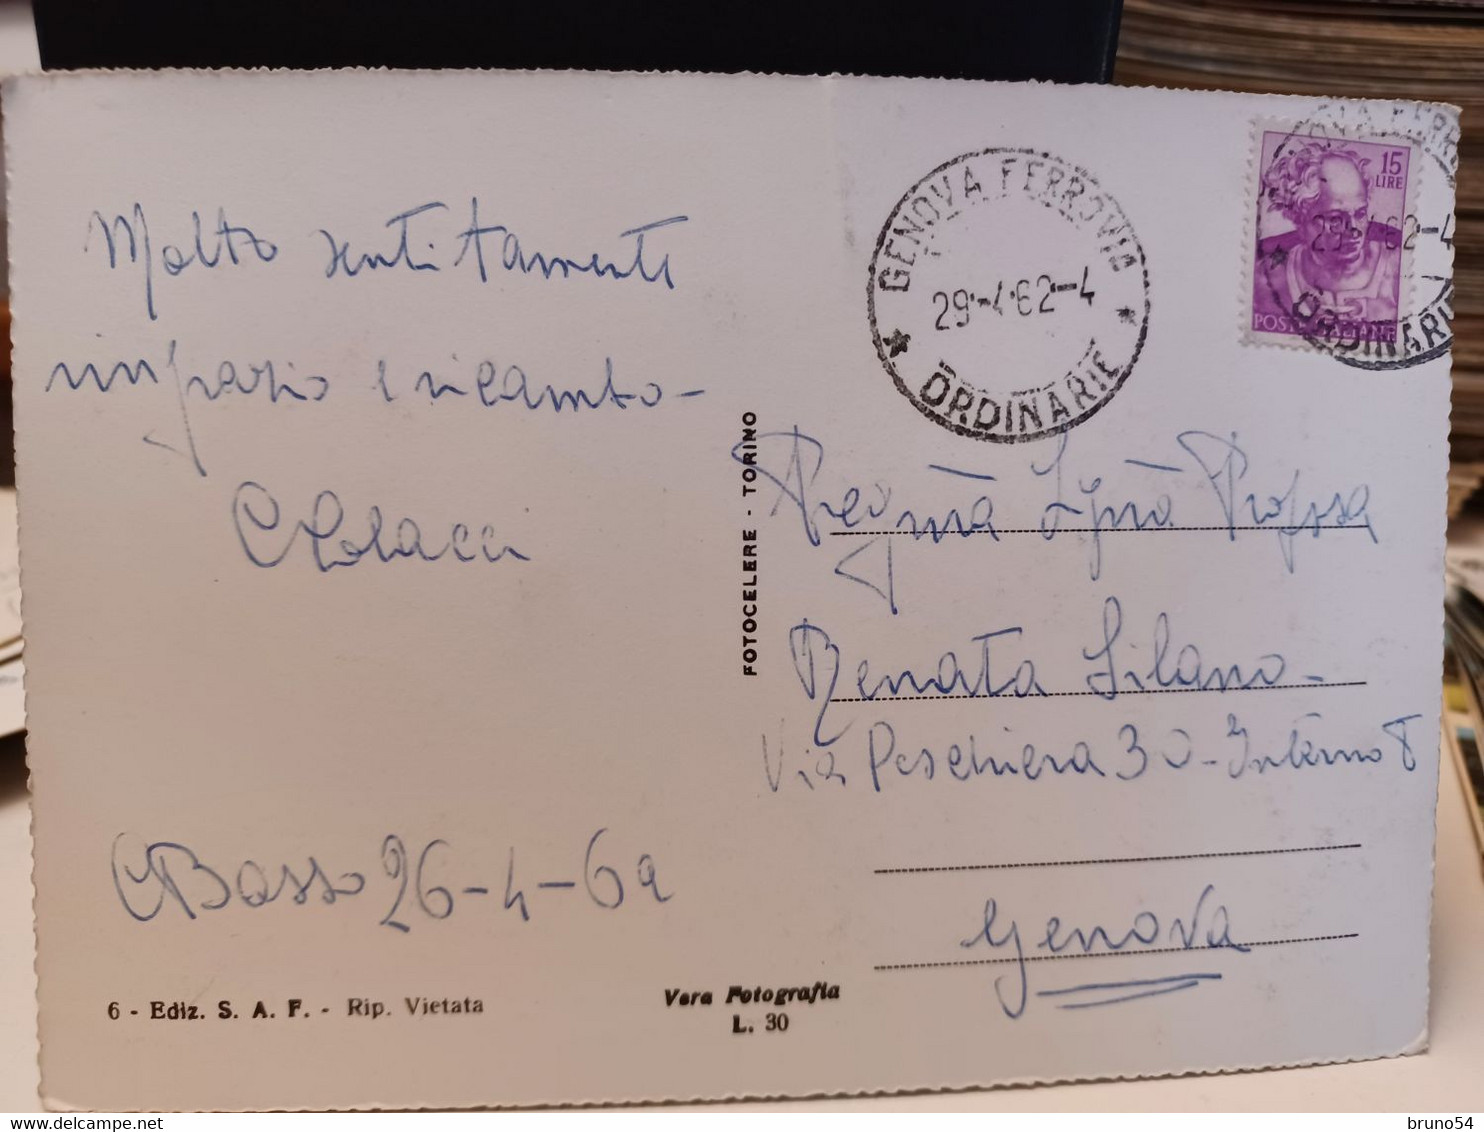 Molto sentitamente
ringrazio e ricambio-
Colacci
C Basso 26-4-62
6 - Ediz. S. A. F. - Rip. Vietata
Vera Fotografia
L. 30
FOTOCELERE - TORINO
GENOVA FERROVIA
29·-4·62-4
* ORDINARIE *
15
LIRE
29·-4·62-4
POSTE ITALIANE
ORDINARIE
Preg.ma Sig.na Prof.ssa
Renata Silano-
Via Peschiera 30-Interno 8
Genova
bruno54